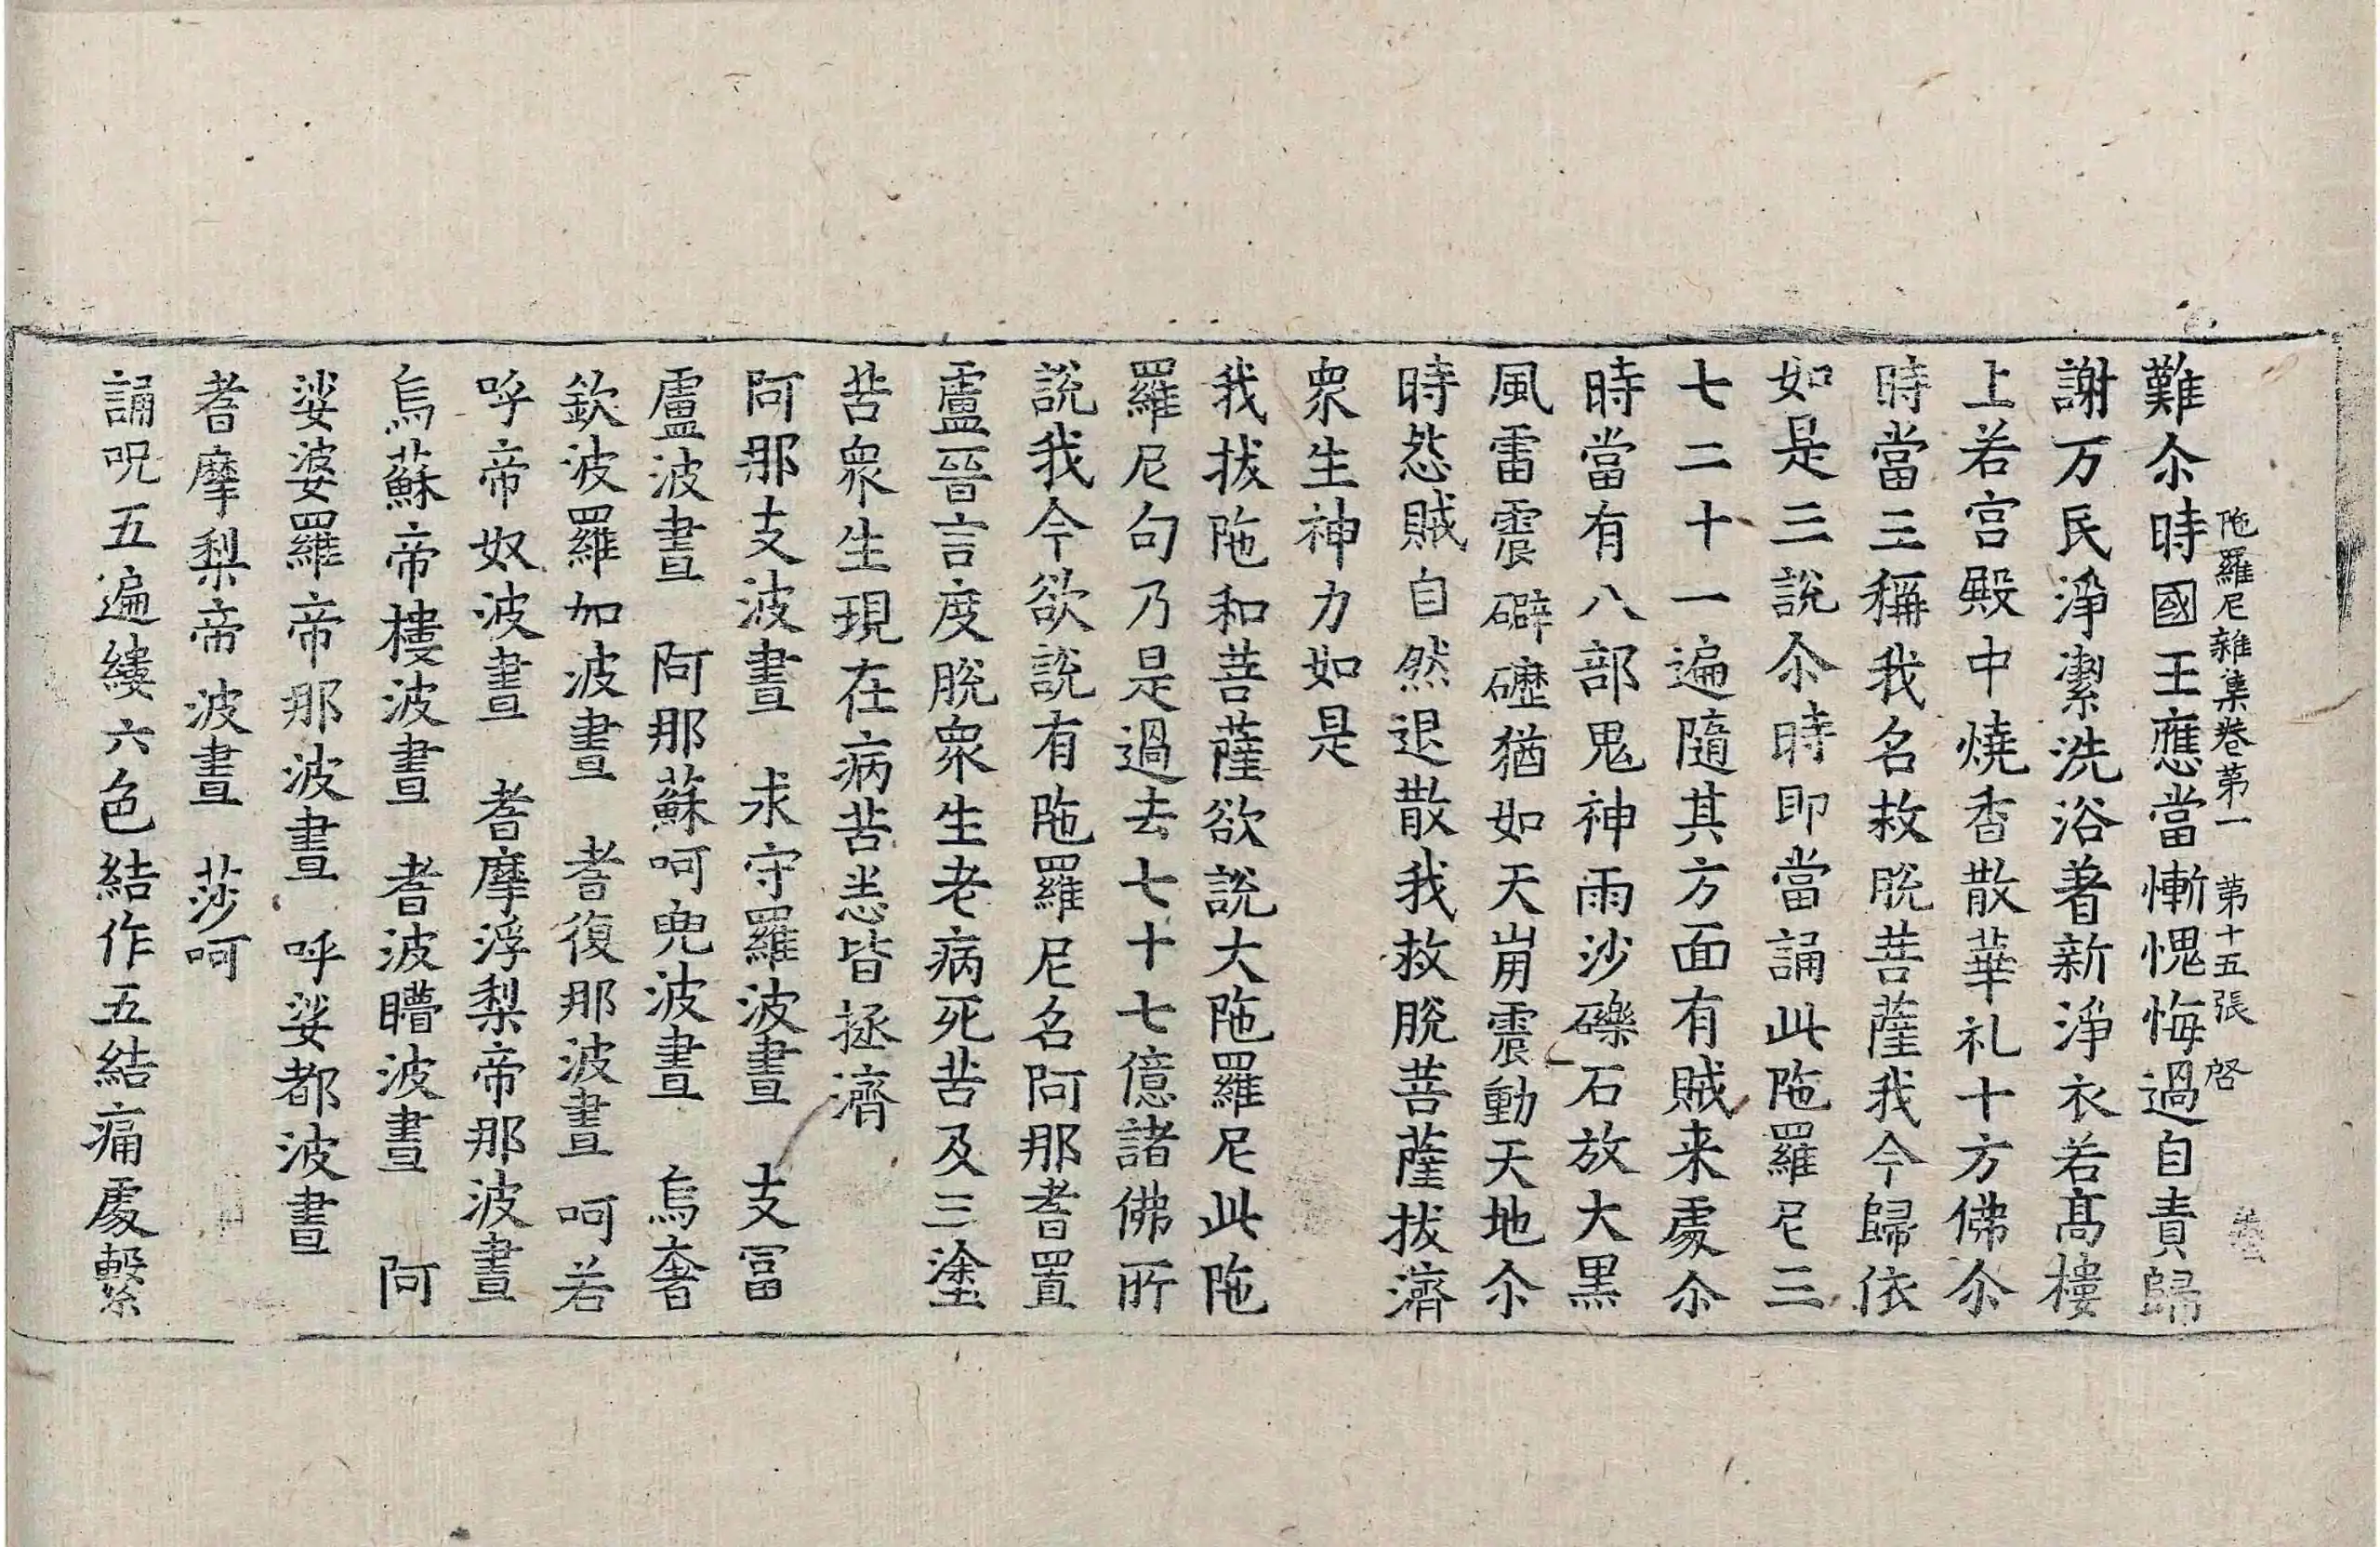 陁羅尼雜集卷第一　第十五張　啓
難尒時國王應當慚愧悔過自責歸
謝万民淨潔洗浴著新淨衣若髙樓
上若宫殿中燒香散華礼十方佛尒
時當三稱我名救脫菩薩我今歸依
如是三說尒時即當誦此陁羅尼三
七二十一遍隨其方面有賊来處尒
時當有八部鬼神雨沙礫石放大黒
風雷震礔礰猶如天崩震動天地尒
時怨賊自然退散我救脫菩薩拔濟
衆生神力如是
我拔陁和菩薩欲說大陁羅尼此陁
羅尼句乃是過去七十七億諸佛所
說我今欲說有陁羅尼名阿那耆置
盧晉言度脫衆生老病死苦及三塗
苦衆生現在病苦恙皆拯濟
阿那支波晝　求守羅波晝　支冨
盧波晝　阿那蘇呵兜波晝　烏奢
欽波羅如波晝　耆復那波晝　呵若
呼帝奴波晝　耆摩浮梨帝那波晝
烏蘇帝樓波晝　耆波瞫波晝　阿
娑婆羅帝那波晝　呼娑都波晝
耆摩梨帝　波晝　莎呵
誦呪五遍縷六色結作五結痛處繫